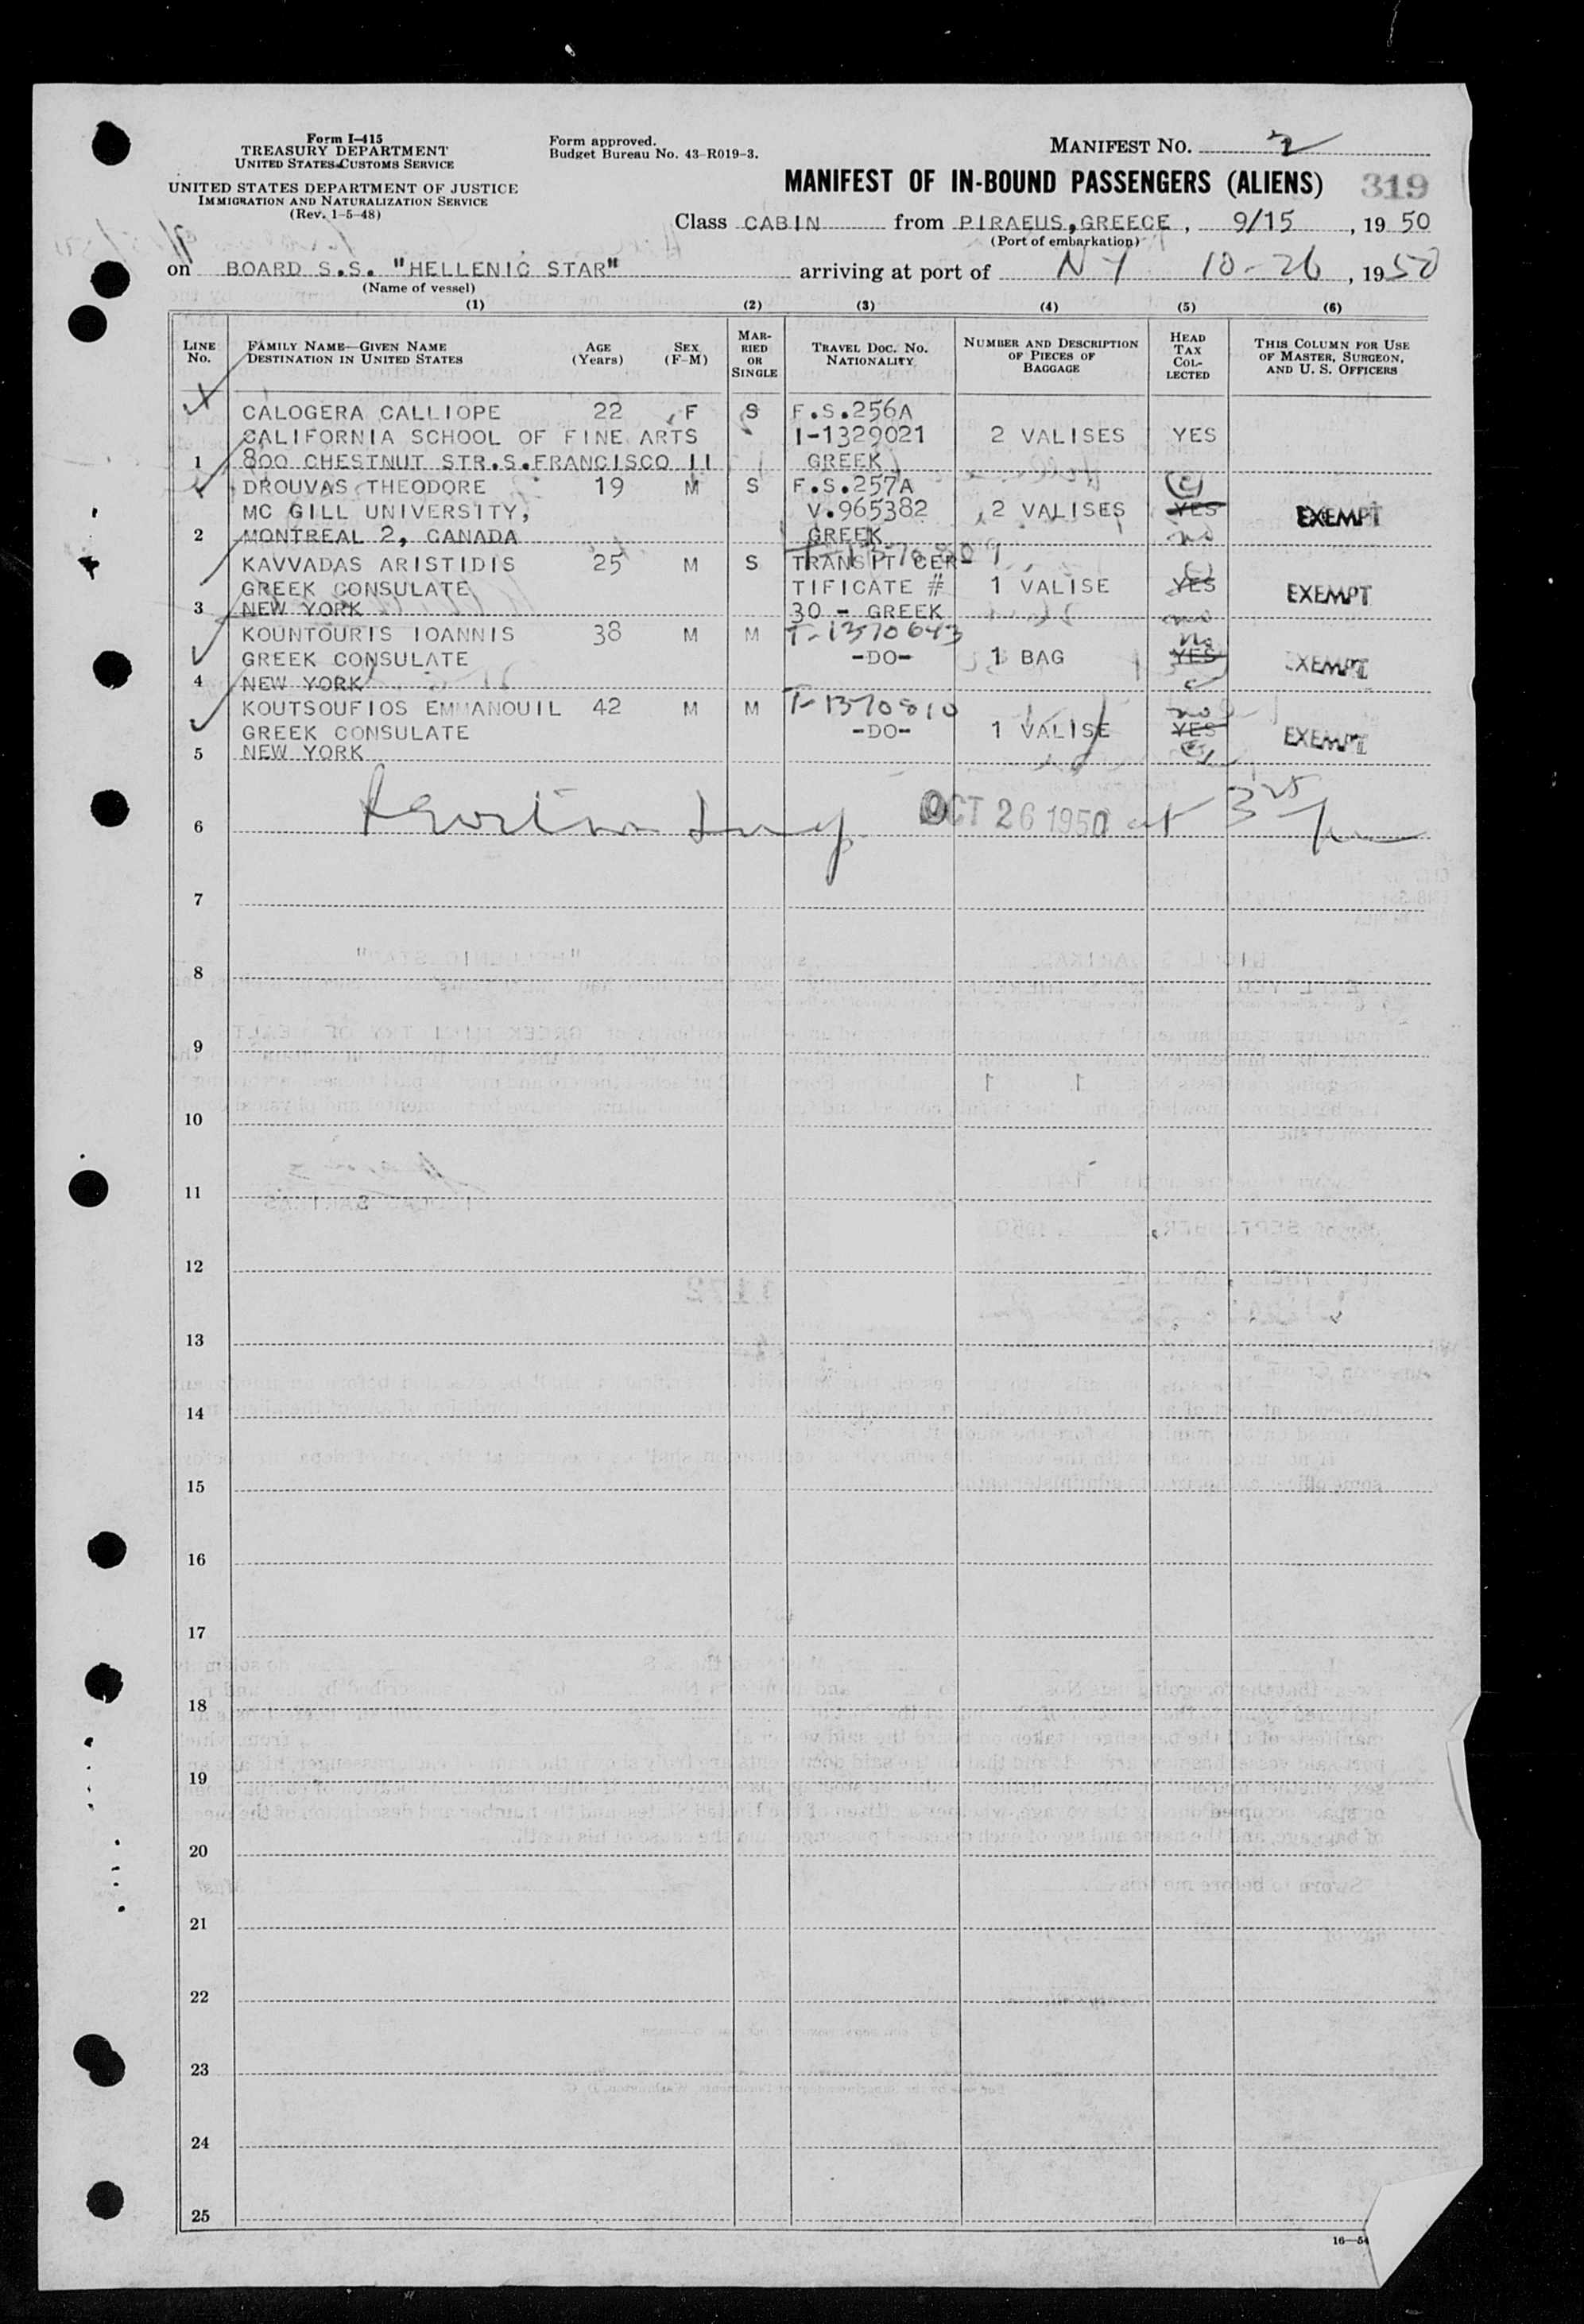 Form I-415
TREASURY DEPARTMENT
UNITED STATES CUSTOMS SERVICE
UNITED STATES DEPARTMENT OF JUSTICE
IMMIGRATION AND NATURALIZATION SERVICE
(Rev. 1-5-48)
Form approved.
Budget Bureau No. 43-R019-3.
MANIFEST No. 2
MANIFEST OF IN-BOUND PASSENGERS (ALIENS) 319
Class CABIN from PIRAEUS, GREECE, 9/15, 1950
(Port of embarkation)
on BOARD S.S. "HELLENIC STAR" arriving at port of NY 10-26, 1950
(Name of vessel)
(1) (2) (3) (4) (5) (6)
LINE No. FAMILY NAME—GIVEN NAME DESTINATION IN UNITED STATES AGE (Years) SEX (F-M) MARRIED OR SINGLE TRAVEL DOC. NO. NATIONALITY NUMBER AND DESCRIPTION OF PIECES OF BAGGAGE HEAD TAX COLLECTED THIS COLUMN FOR USE OF MASTER, SURGEON, AND U. S. OFFICERS
CALOGERA CALLIOPE 22 F S F.S.256A
CALIFORNIA SCHOOL OF FINE ARTS I-1329021 2 VALISES YES
1 800 CHESTNUT STR.S.FRANCISCO 11 GREEK
DROUVAS THEODORE 19 M S F.S.257A (c)
MC GILL UNIVERSITY, V.965382 2 VALISES YES EXEMPT
2 MONTREAL 2, CANADA GREEK no
KAVVADAS ARISTIDIS 25 M S TRANSPT CER-
GREEK CONSULATE TIFICATE # 1 VALISE YES EXEMPT
3 NEW YORK 30 - GREEK no
KOUNTOURIS IOANNIS 38 M M T-1370643 no
GREEK CONSULATE -DO- 1 BAG YES EXEMPT
4 NEW YORK c
KOUTSOUFIOS EMMANOUIL 42 M M T-1370810 no
GREEK CONSULATE -DO- 1 VALISE YES EXEMPT
5 NEW YORK
6 OCT 26 1950 at 3 25 pm
7
8
9
10
11
12
13
14
15
16
17
18
19
20
21
22
23
24
25